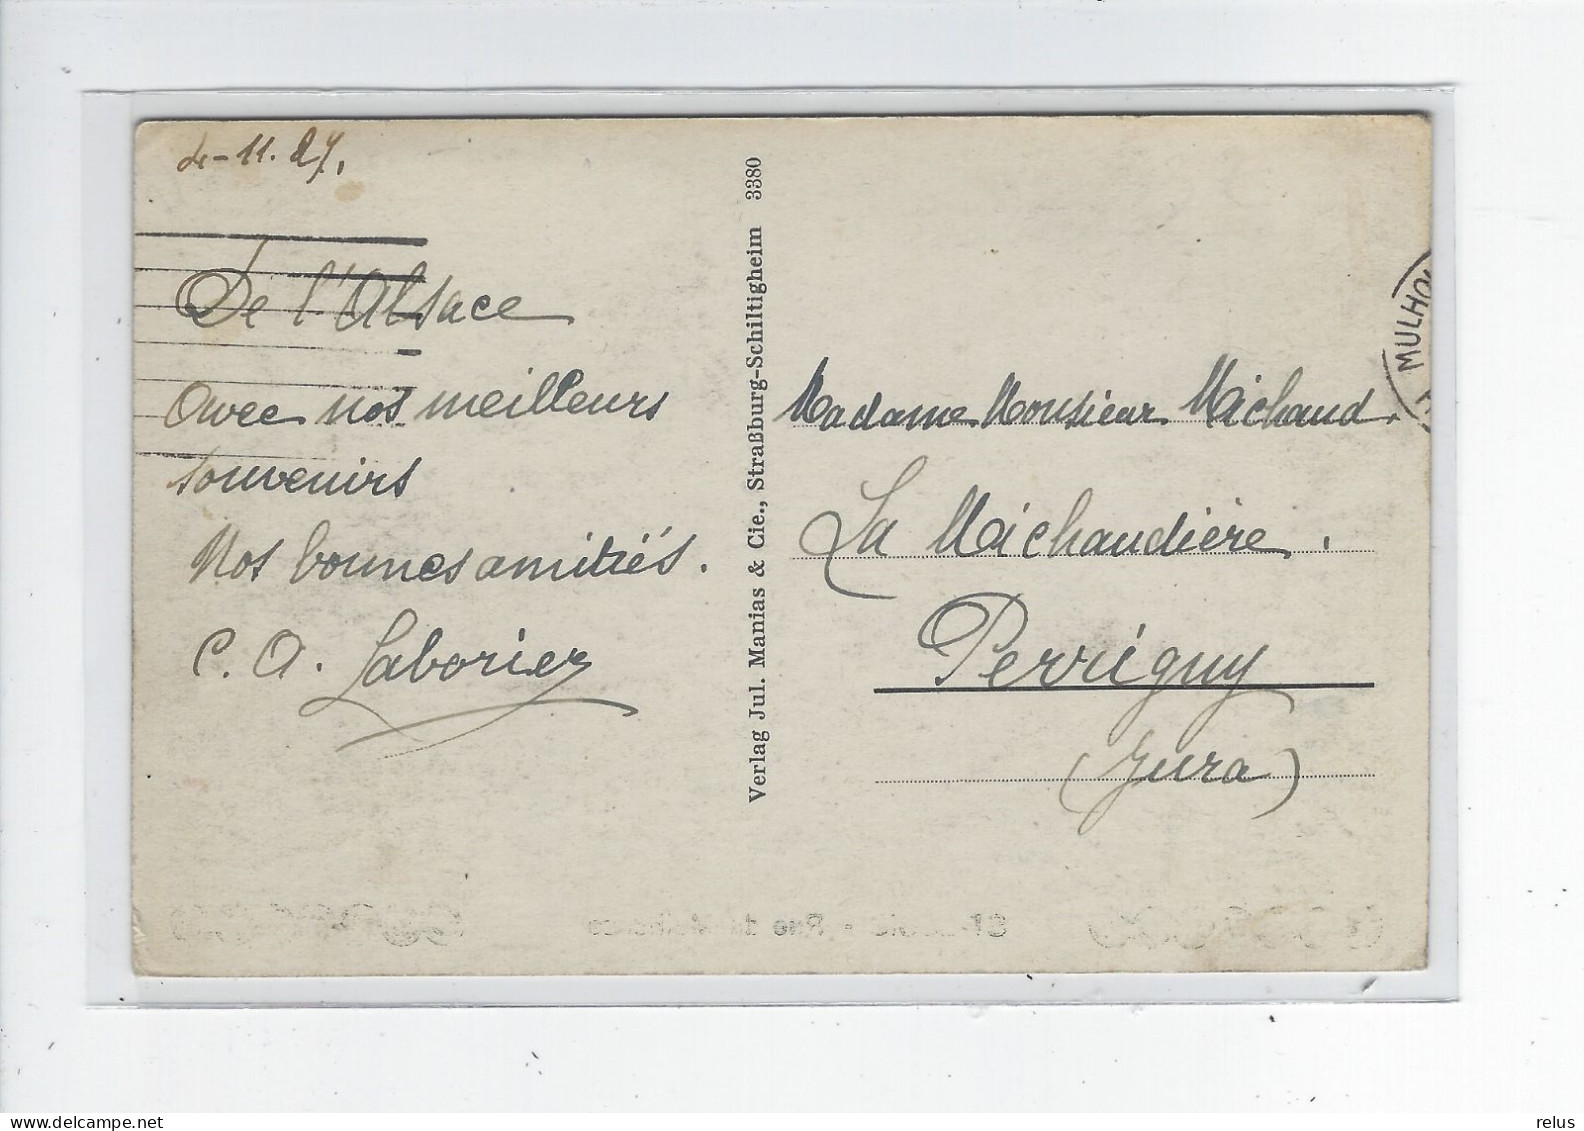 4-11.27.
De l'Alsace
avec nos meilleurs
souvenirs
Nos bonnes amitiés.
C. A. Laborier
Verlag Jul. Manias & Cie., Straßburg-Schiltigheim 3380
MULHOU
Madame Monsieur Michaud.
La Michaudière.
Perrigny
(Jura)
relus